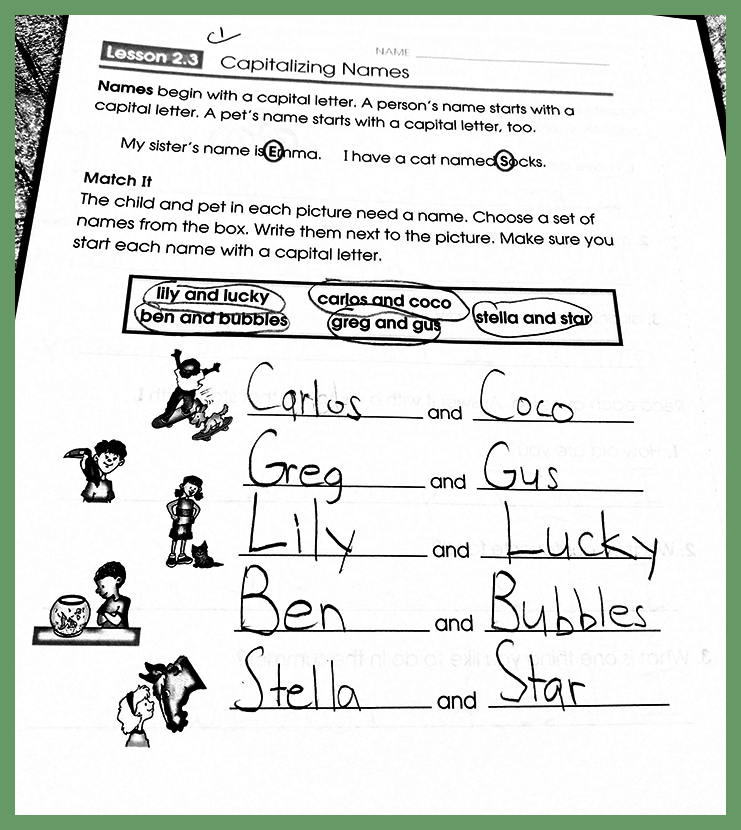 NAME
Lesson 2.3 Capitalizing Names
Names begin with a capital letter. A person's name starts with a
capital letter. A pet's name starts with a capital letter, too.
My sister's name is Emma. I have a cat named Socks.
Match It
The child and pet in each picture need a name. Choose a set of
names from the box. Write them next to the picture. Make sure you
start each name with a capital letter.
lily and lucky carlos and coco
ben and bubbles greg and gus stella and star
Carlos and Coco
Greg and Gus
Lily and Lucky
Ben and Bubbles
Stella and Star